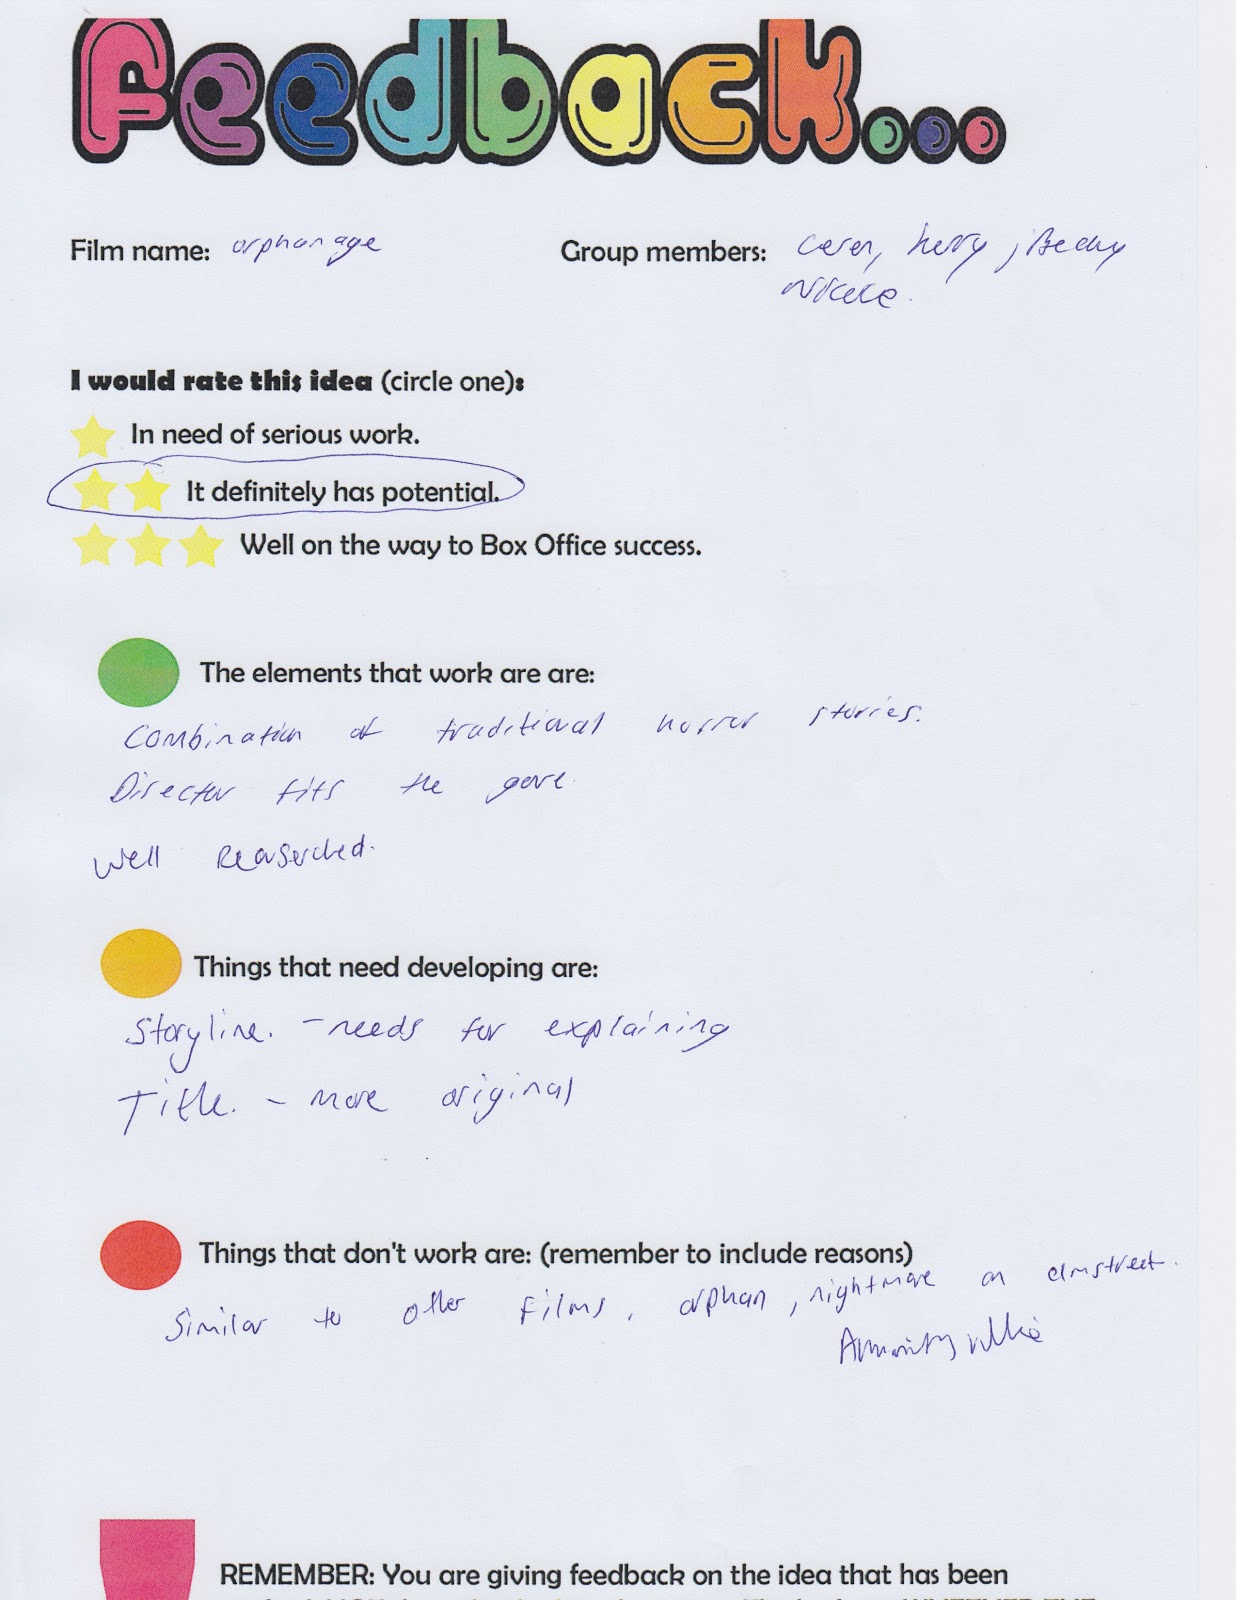 feedback...
Film name: orphanage
Group members: Ceren, herry, Becky
Nicole.
I would rate this idea (circle one):
In need of serious work.
It definitely has potential.
Well on the way to Box Office success.
The elements that work are are:
Combination of traditional horror stories.
Director fits the
Well
Things that need developing are:
Storyline. - needs for explaining
Title. - more original
Things that don't work are: (remember to include reasons)
Similar to other films, orphan, nightmare on elmstreet.
REMEMBER: You are giving feedback on the idea that has been